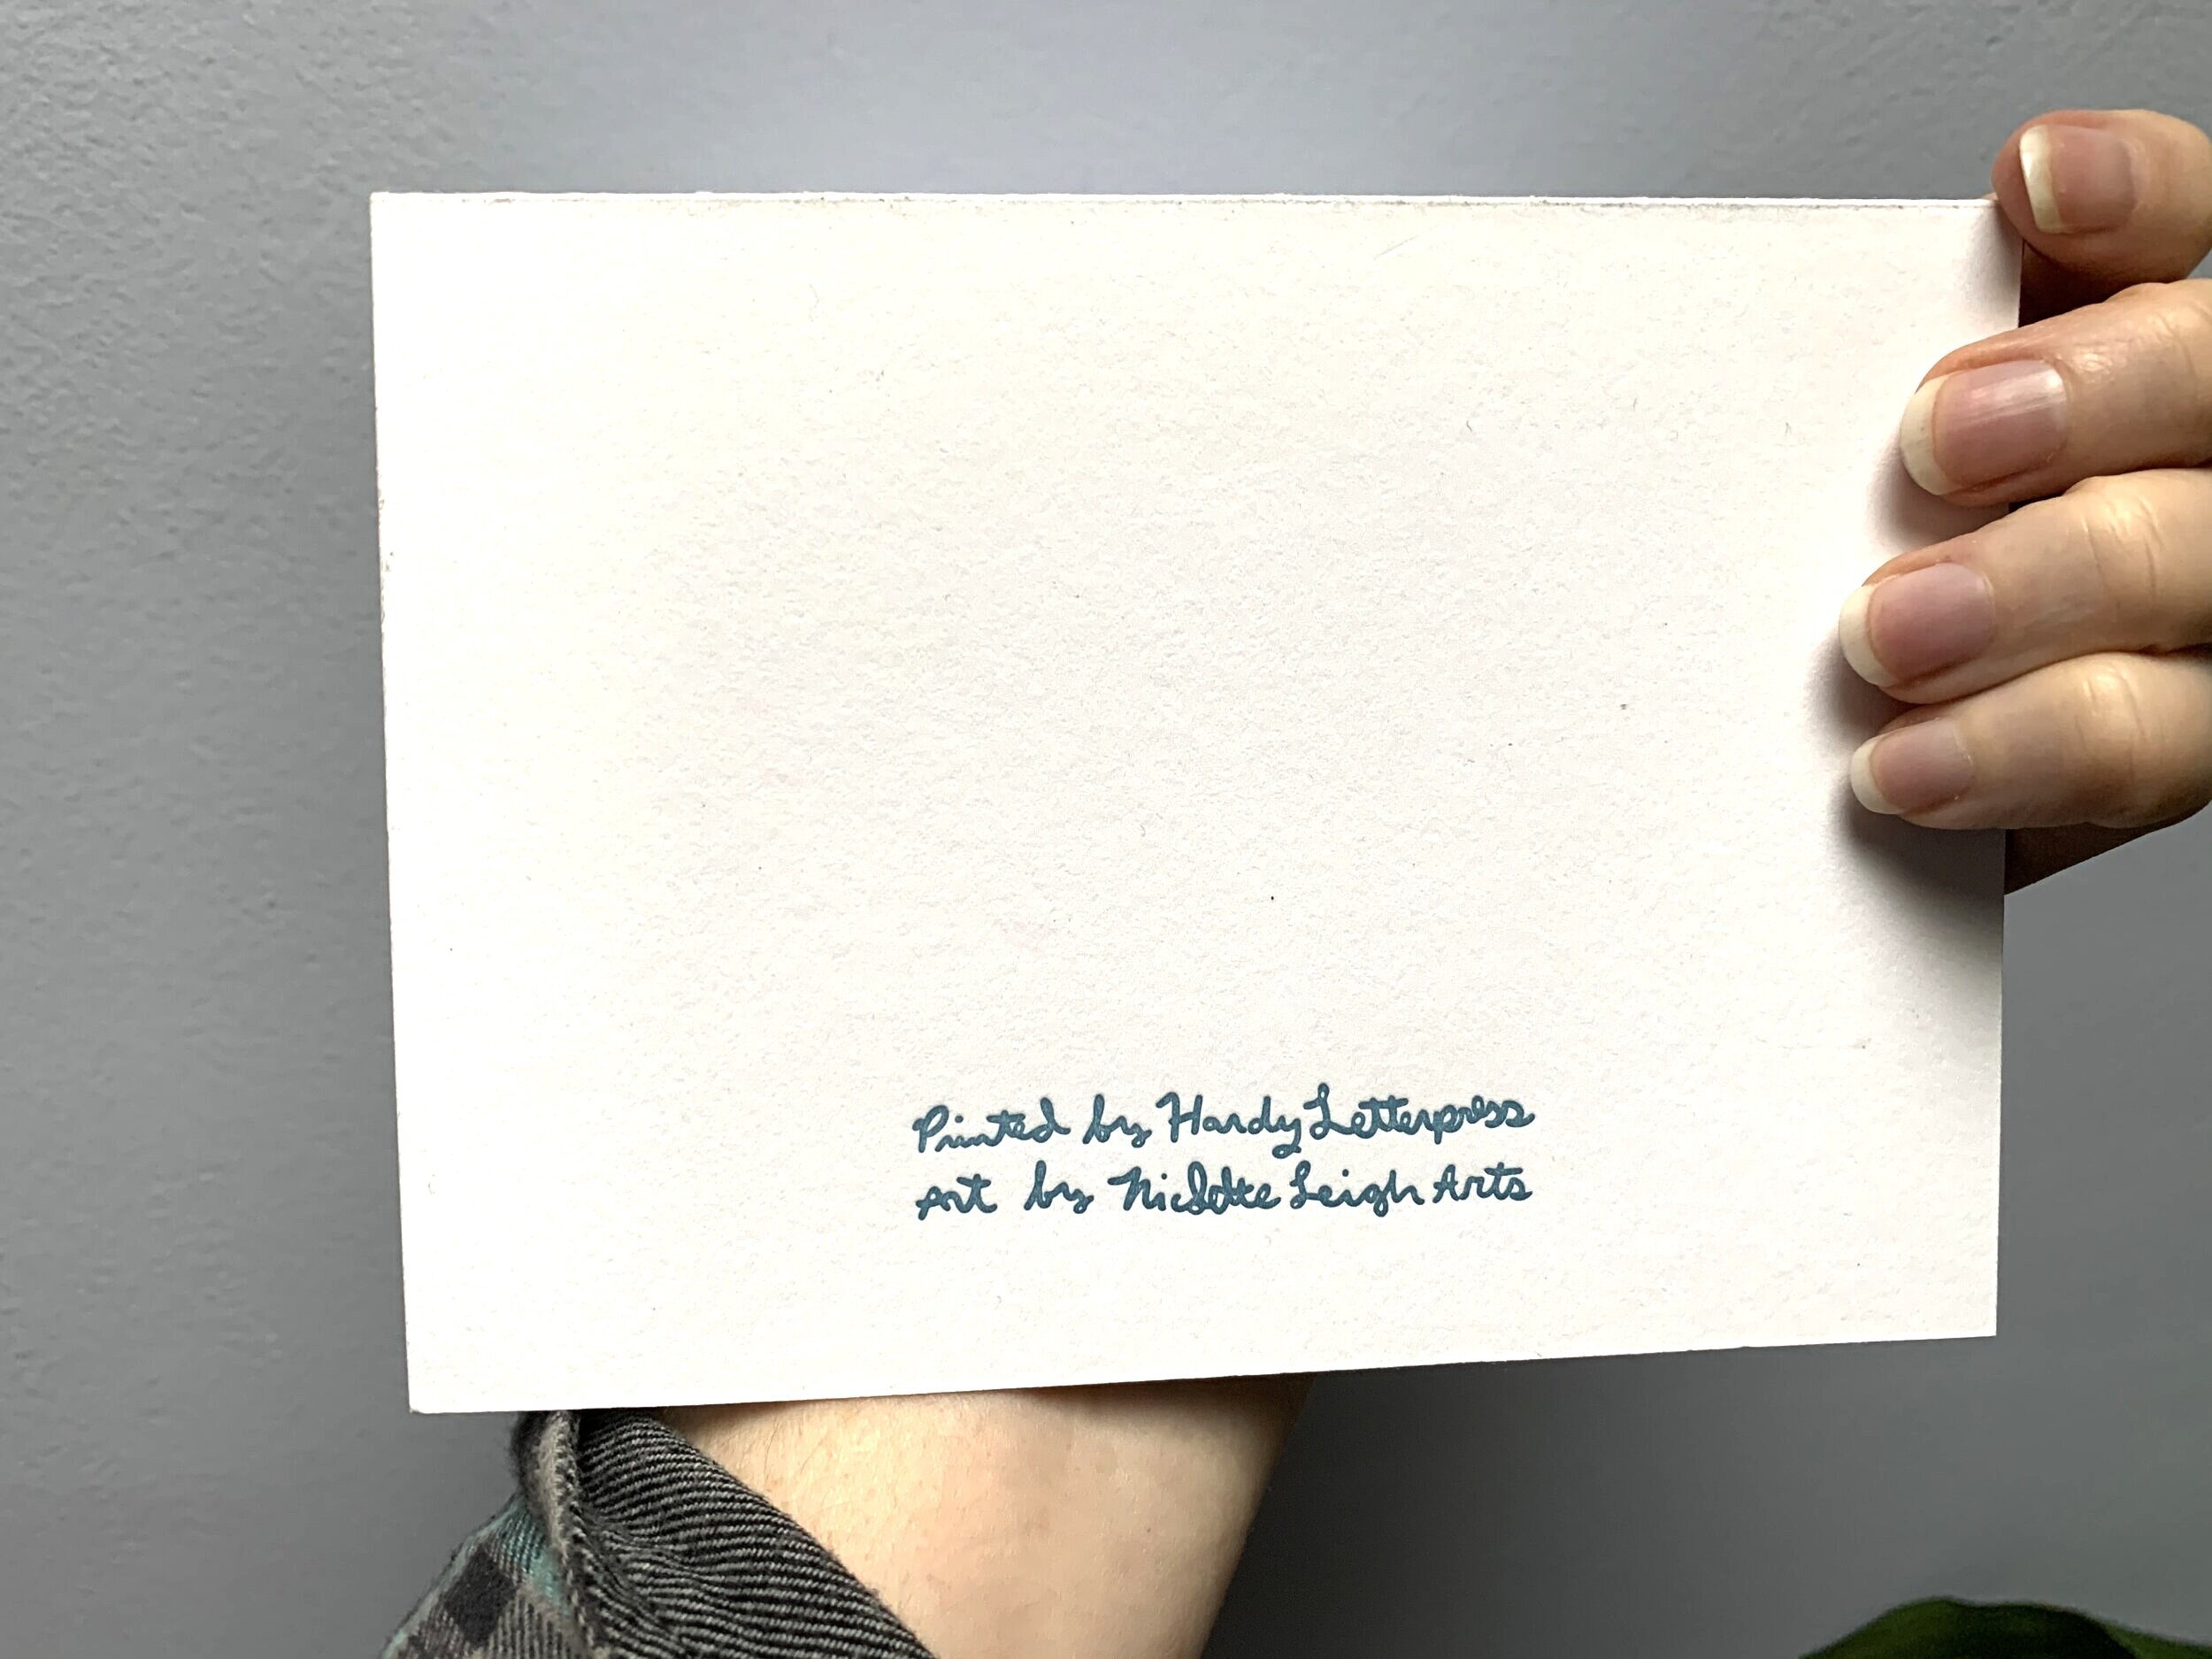 Printed by Hardy Letterpress
Art by Nicolette Leigh Arts